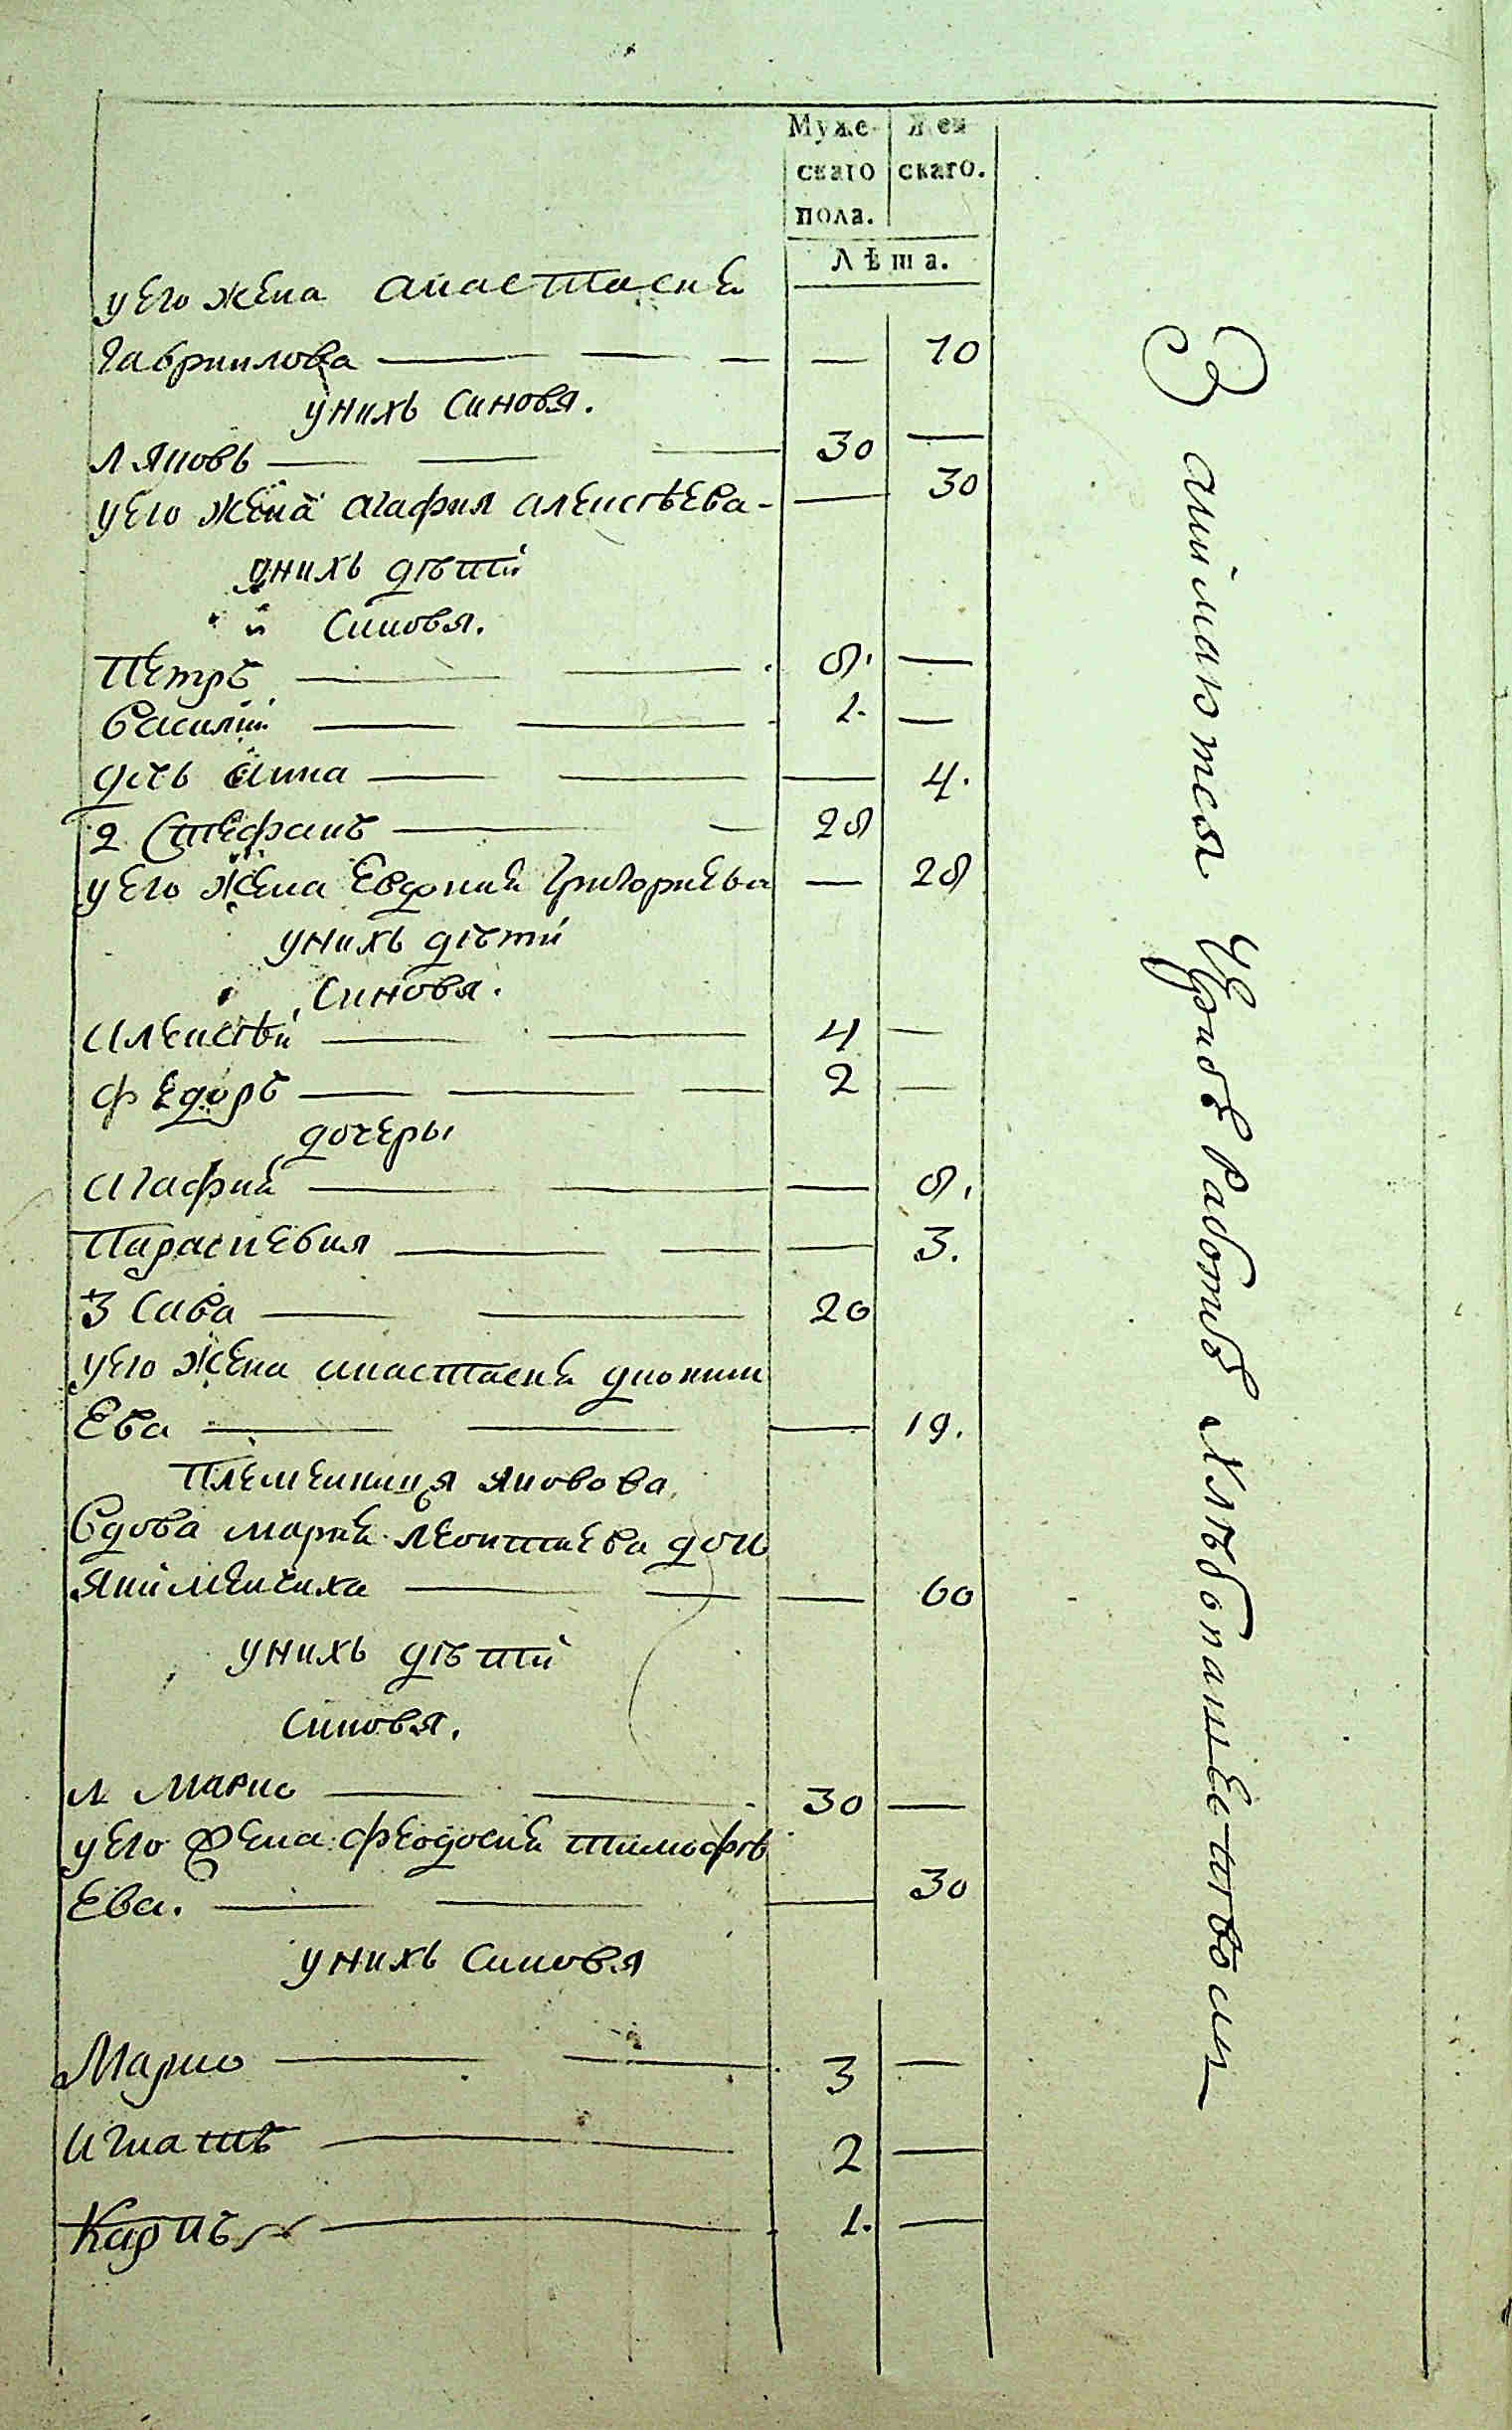 Муже- Жен
скаго скаго.
пола.
Лѣта.
у его жена анастасия
Гавриилова — — — — 70
у нихъ синовя.
1 Яковъ — — — 30 —
у его жена агафия алексѣева - — 30
у нихъ дѣти
синовя.
Петръ — — 8. —
Василий — — 1. —
дочь анна — — — 4.
2 Стефанъ — — 28
у его жена Евдокия Григориева — 28
у нихъ дѣти
синовя.
Алексѣй — — 4 —
Федоръ — — — 2 —
дочеры
Агафия — — — 8.
Параскевия — — — 3.
3 Сава — — 20
у его жена анастасия диониси
Ева — — — 19.
Племенница Яковова
Вдова мария леонтиева дои
Якименчиха — — — 60
у нихъ дѣти
синовя.
1 Марко — — 30 —
у его жена феодосия тимофѣ
Ева. — — — 30
у нихъ синовя
Марко — — 3 —
Игнатъ — 2 —
Карпъ — 1. —
Занимаются Чрибѣ Работѣ Хлѣбопашествомъ